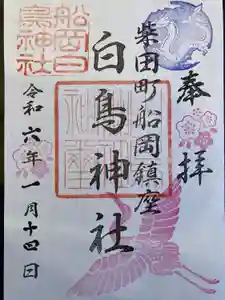 奉拝
柴田町船岡鎮座
白鳥神社
令和六年一月十四日
船岡白
鳥神社